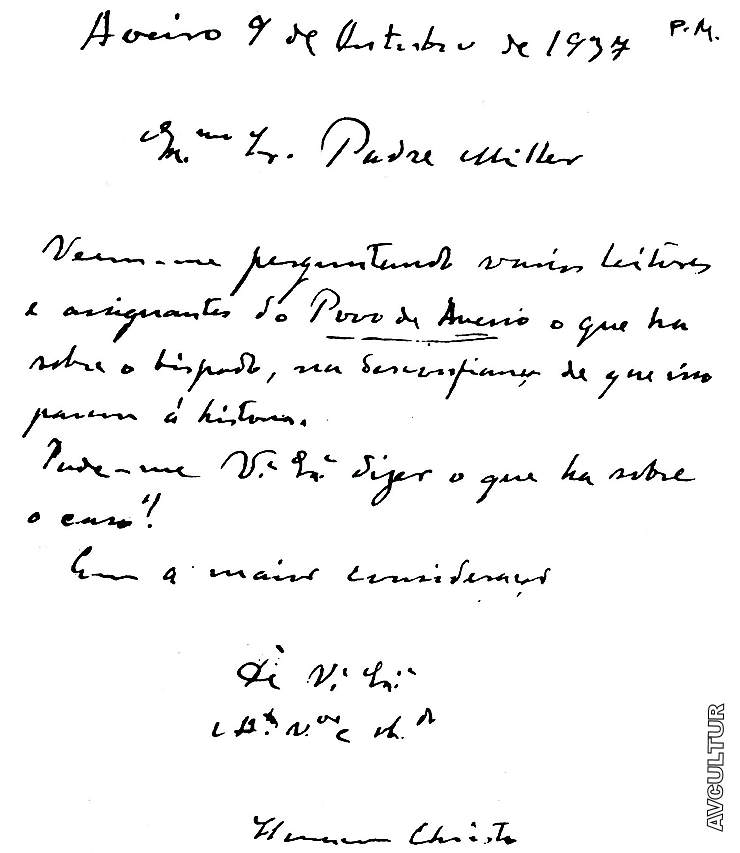 Aveiro 9 de Outubro de 1937 P.M.
Ex.mo Sr. Padre Miller
Veem-me perguntando varios leitores
e assignantes do Povo de Aveiro o que ha
sobre o bispado, na desconfiança de que isso
passou á historia.
Pode-me V.ª Ex.ª dizer o que ha sobre
o caso?
Com a maior consideração
De V.ª Ex.ª
Homem Christo
AVCULTUR